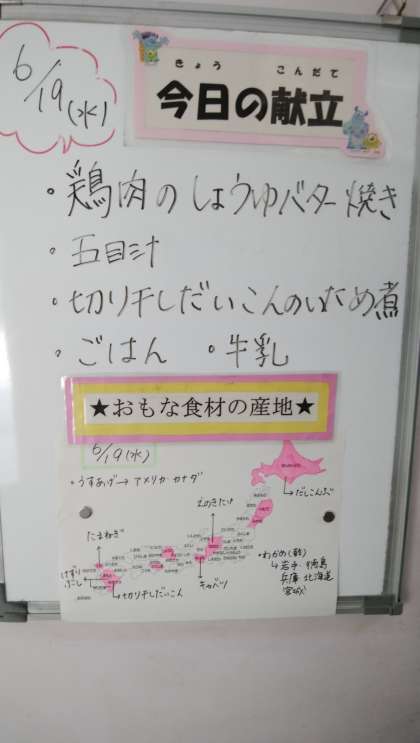 6/19(水)
きょう こんだて
今日の献立
・鶏肉のしょうゆバター焼き
・五目汁
・切り干しだいこんのいため煮
・ごはん ・牛乳
★おもな食材の産地★
6/19(水)
・うすあげ→アメリカ カナダ
→だしこんぶ
えのきたけ
たまねぎ
・わかめ(乾)
↳岩手 徳島
兵庫 北海道
宮城
けずりぶし
→切り干しだいこん
キャベツ